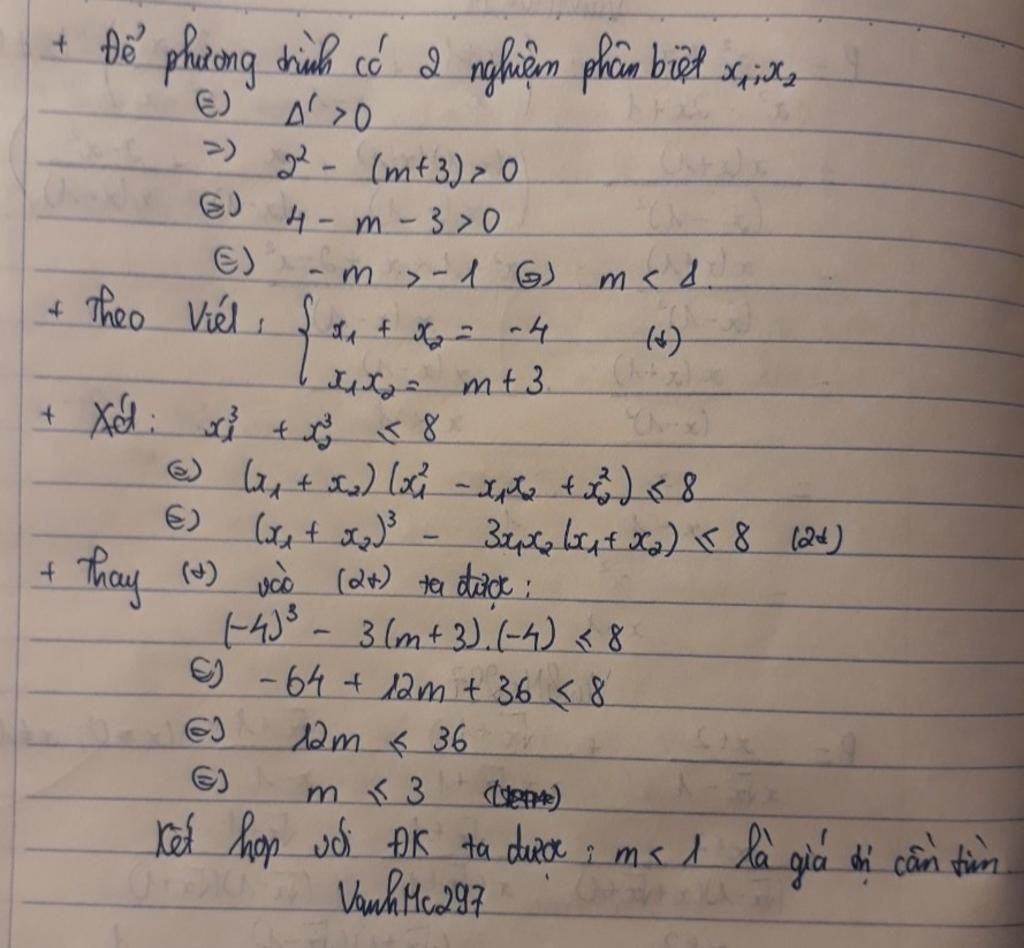 + Để phương trình có 2 nghiệm phân biệt x₁; x₂
⇔ Δ' > 0
=> 2² - (m+3) > 0
⇔ 4 - m - 3 > 0
⇔ - m > - 1 ⇔ m < 1.
+ Theo Viét : { x₁ + x₂ = -4 (*)
x₁x₂ = m + 3
+ Xét: x₁³ + x₂³ ≤ 8
⇔ (x₁ + x₂) (x₁² - x₁x₂ + x₂²) ≤ 8
⇔ (x₁ + x₂)³ - 3x₁x₂ (x₁ + x₂) ≤ 8 (2*)
+ Thay (*) vào (2*) ta được :
(-4)³ - 3(m+3).(-4) ≤ 8
⇔ -64 + 12m + 36 ≤ 8
⇔ 12m ≤ 36
⇔ m ≤ 3
Kết hợp với ĐK ta được : m < 1 là giá trị cần tìm.
VanhMc297